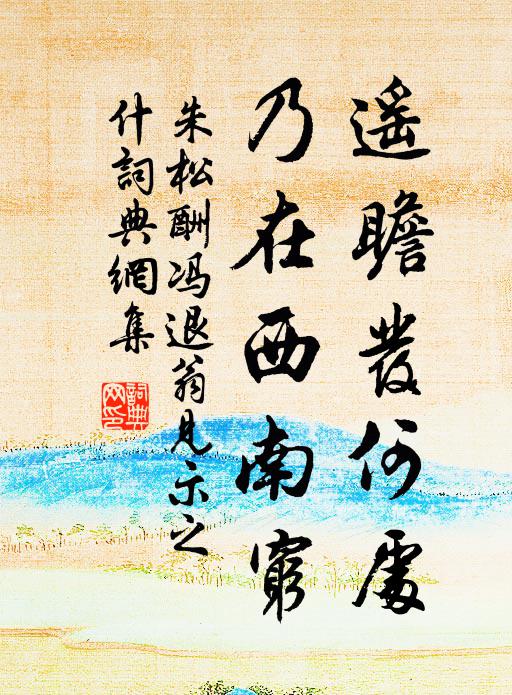 遙瞻發何處
乃在西南窮
朱松酬冯退翁見示之
什詞典網集
詞典
网印